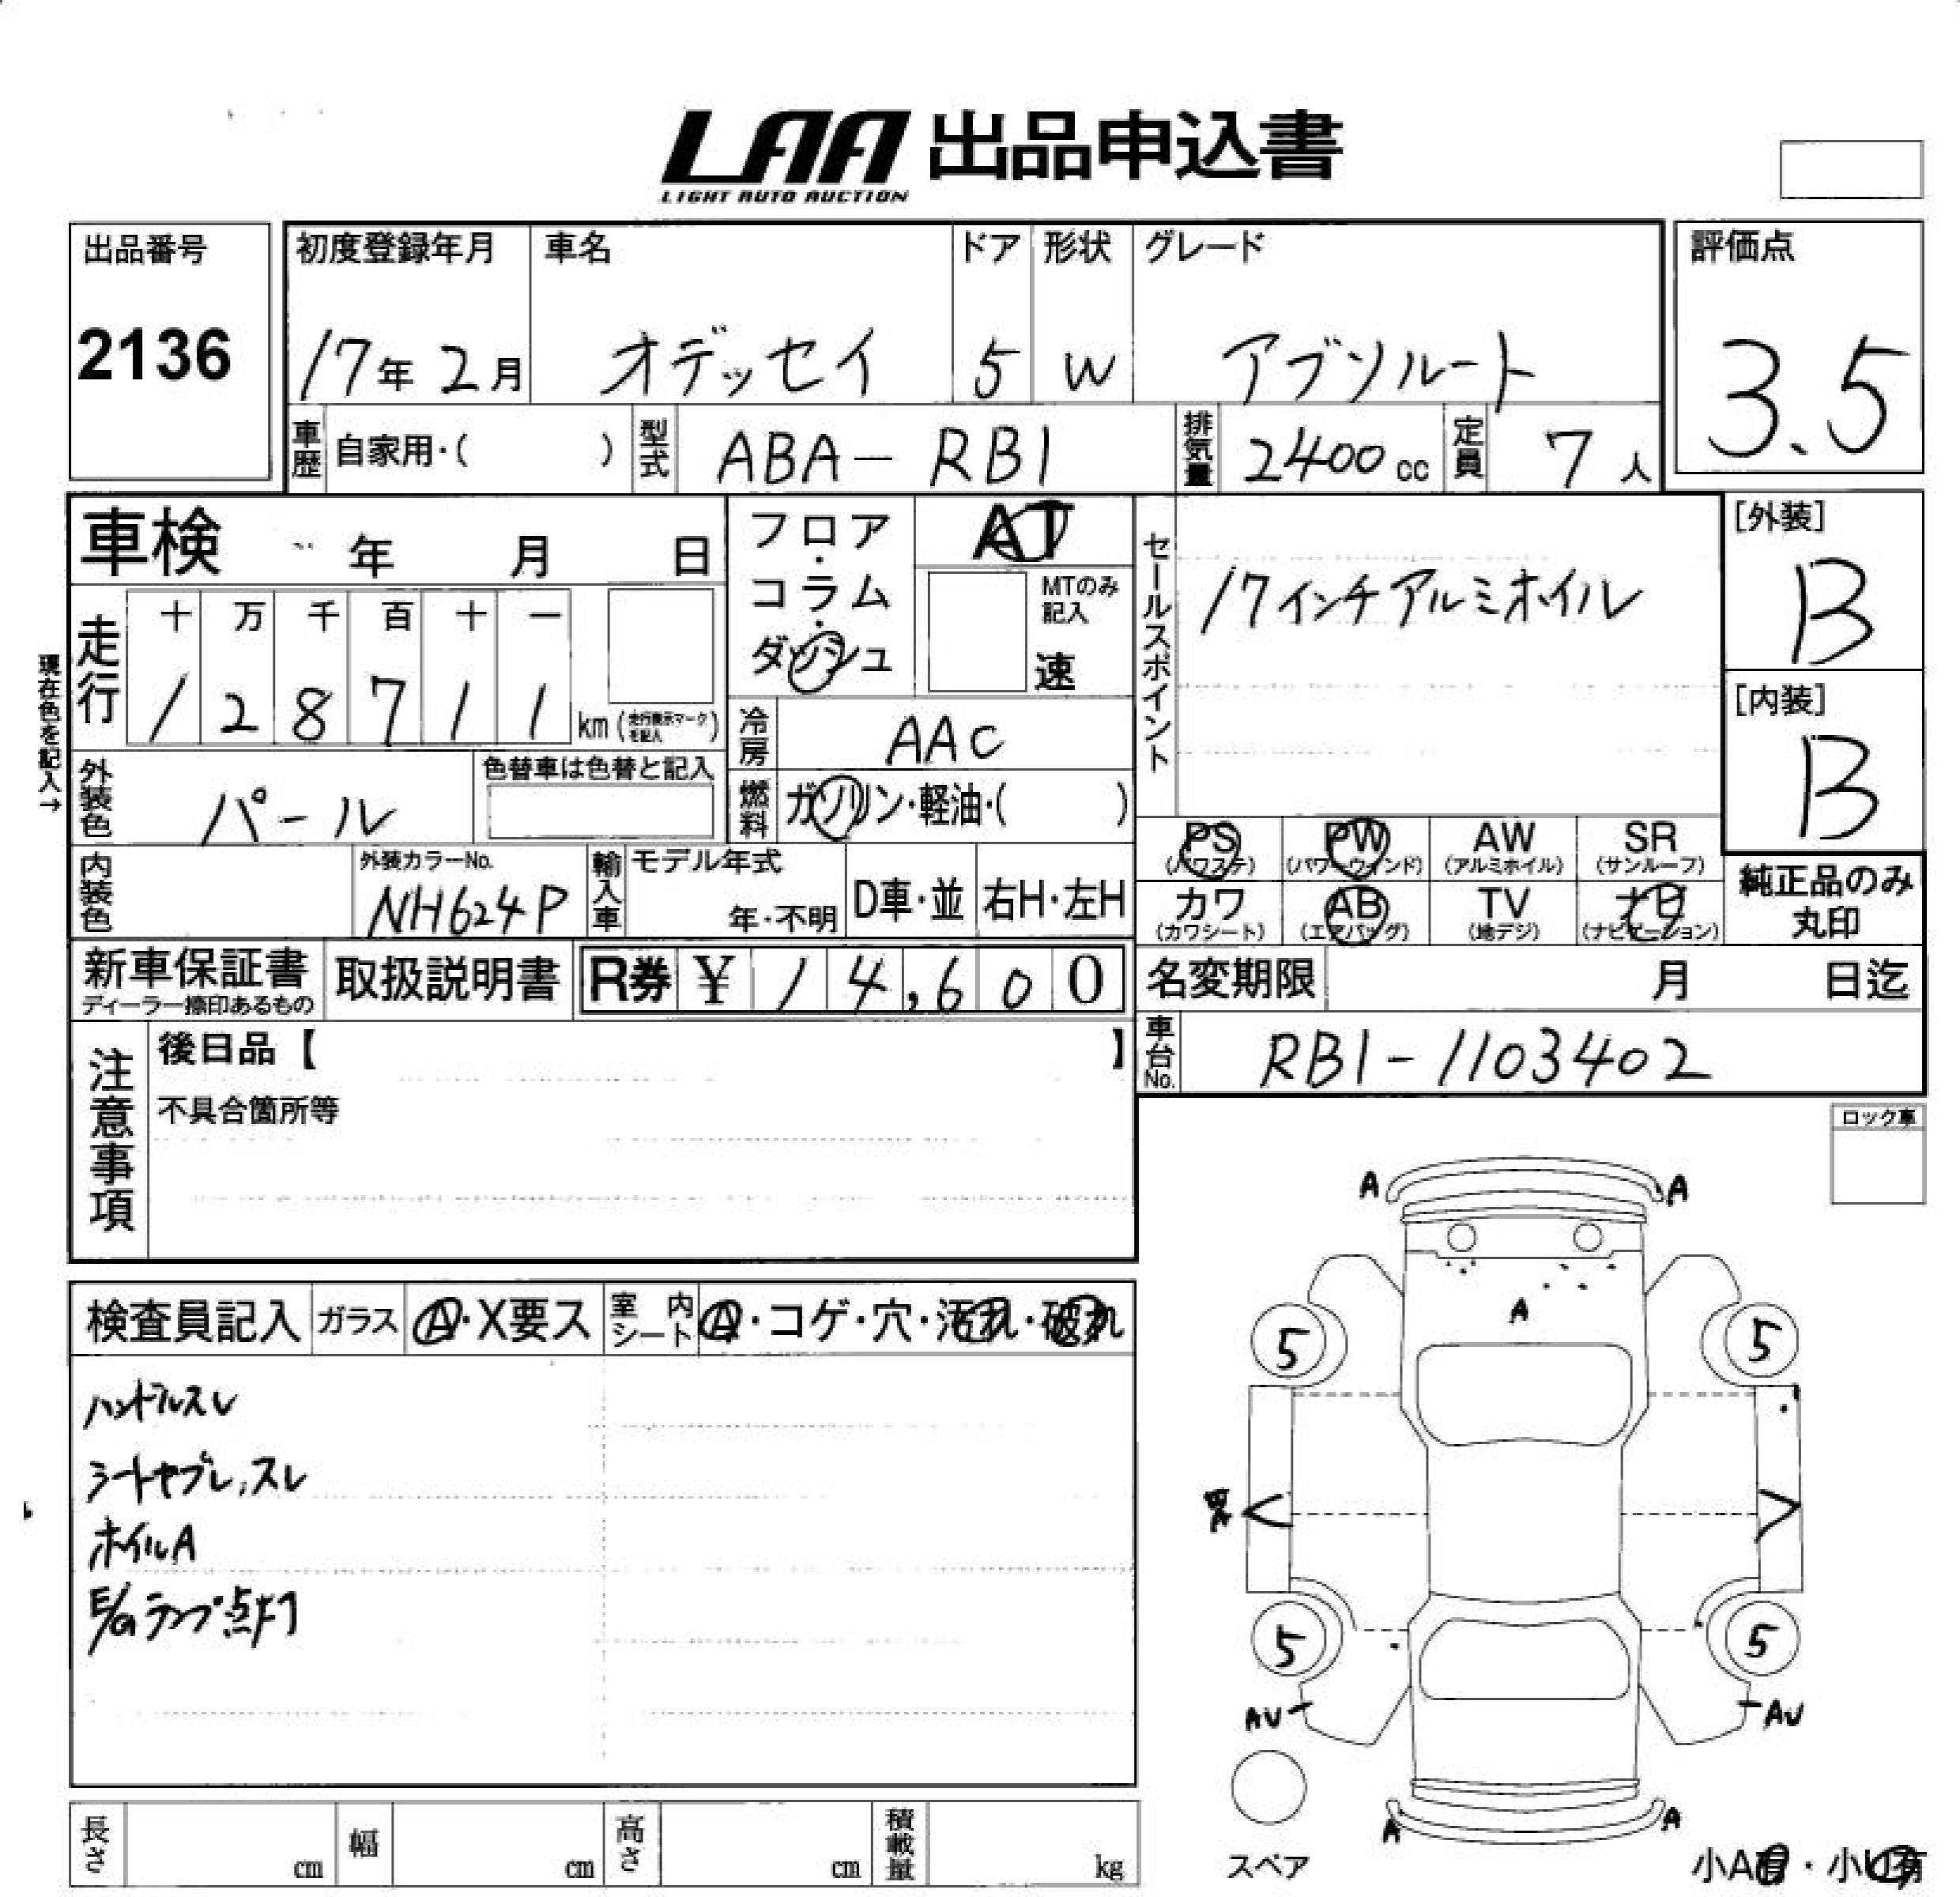 LAA 出品申込書
LIGHT AUTO AUCTION
出品番号
2136
初度登録年月
17年 2月
車名
オデッセイ
ドア
5
形状
W
グレード
アブソルート
評価点
3.5
車歴
自家用・( )
型式
ABA-RB1
排気量
2400 cc
定員
7 人
車検 年 月 日
フロア・コラム・ダッシュ
AT
MTのみ記入
速
セールスポイント
17インチアルミホイル
[外装]
B
[内装]
B
現在色を記入→
走行
十 万 千 百 十 一
1 2 8 7 1 1 km (走行表示マークを記入)
冷房
AAC
外装色
パール
色替車は色替と記入
燃料
ガソリン・軽油・( )
PS (パワステ)
PW (パワーウィンド)
AW (アルミホイル)
SR (サンルーフ)
カワ (カワシート)
AB (エアバッグ)
TV (地デジ)
ナビ (ナビゲーション)
純正品のみ丸印
内装色
外装カラーNo.
NH624P
輸入車
モデル年式
年・不明
D車・並
右H・左H
新車保証書
ディーラー捺印あるもの
取扱説明書
R券 ¥ 14,600
名変期限 月 日迄
車台No.
RB1-1103402
注意事項
後日品【 】
不具合箇所等
ロック車
検査員記入
ガラス
A・X要ス
室内シート
A・コゲ・穴・汚れ・破れ
ハンドルスレ
シートヤブレ,スレ
ホイルA
E/Gランプ点灯
A A
A
5 5
5 5
AU AU
A A
スペア
小A有・小U有
長さ cm
幅 cm
高さ cm
積載量 kg